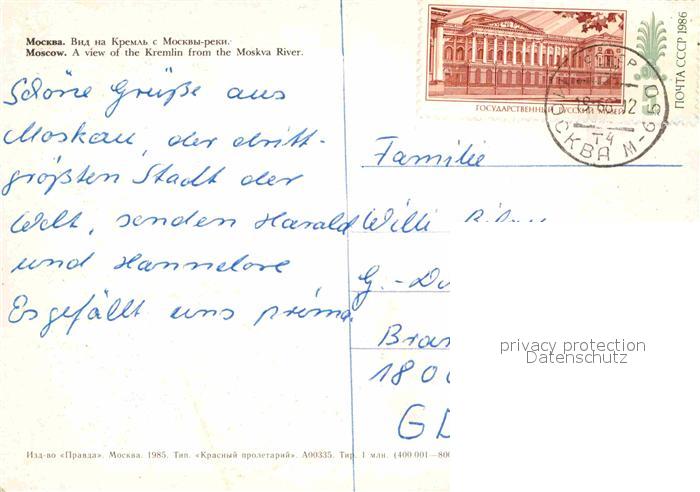 Москва. Вид на Кремль с Москвы-реки.
Moscow. A view of the Kremlin from the Moskva River.
Schöne Grüße aus
Moskau, der dritt-
größten Stadt der
Welt, senden Harald
und Hannelore
Es gefällt uns prima.
ГОСУДАРСТВЕННЫЙ РУССКИЙ МУЗЕЙ
ПОЧТА СССР 1986
МОСКВА М-950
Т4
Familie
Willi
G.-
Bran
1800
privacy protection
Datenschutz
Изд-во «Правда». Москва. 1985. Тип. «Красный пролетарий». А00335. Тир. 1 млн. (400 001—800